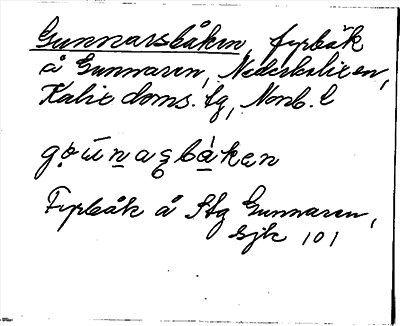 Gunnarsbåken, fyrbåk
å Gunnaren, Nederkalix sn,
Kalix doms. tg, Norrb. l
Fyrbåk å Stg Gunnaren,
Sjk 101